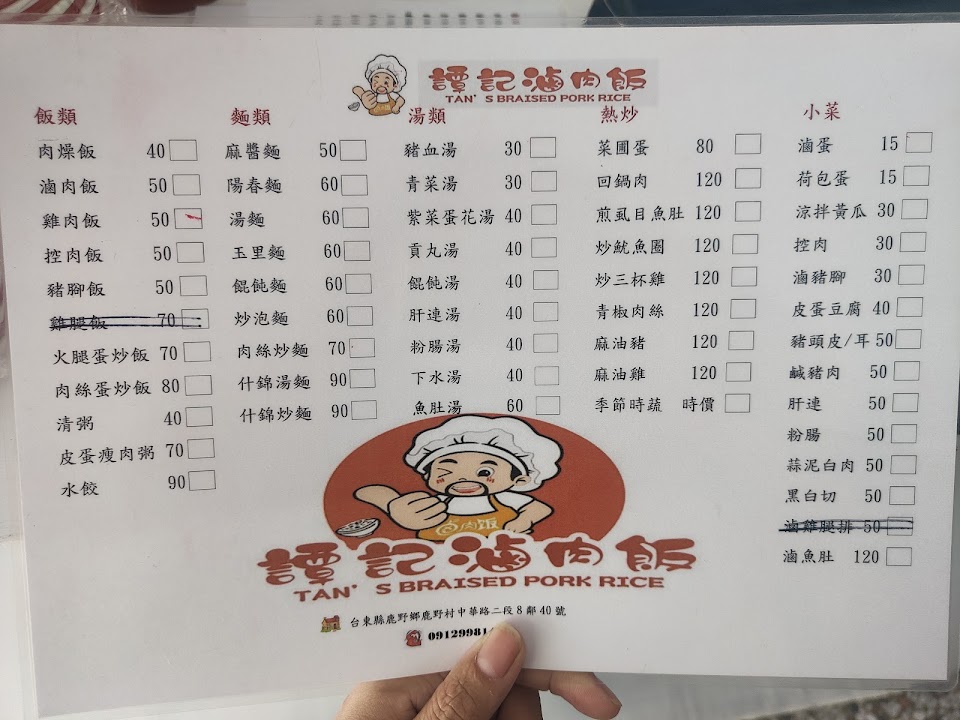 譚記滷肉飯
TAN'S BRAISED PORK RICE
飯類
肉燥飯 40
滷肉飯 50
雞肉飯 50
控肉飯 50
豬腳飯 50
雞腿飯 70
火腿蛋炒飯 70
肉絲蛋炒飯 80
清粥 40
皮蛋瘦肉粥 70
水餃 90
麵類
麻醬麵 50
陽春麵 60
湯麵 60
玉里麵 60
餛飩麵 60
炒泡麵 60
肉絲炒麵 70
什錦湯麵 90
什錦炒麵 90
湯類
豬血湯 30
青菜湯 30
紫菜蛋花湯 40
貢丸湯 40
餛飩湯 40
肝連湯 40
粉腸湯 40
下水湯 40
魚肚湯 60
熱炒
菜圃蛋 80
回鍋肉 120
煎虱目魚肚 120
炒魷魚圈 120
炒三杯雞 120
青椒肉絲 120
麻油豬 120
麻油雞 120
季節時蔬 時價
小菜
滷蛋 15
荷包蛋 15
涼拌黃瓜 30
控肉 30
滷豬腳 30
皮蛋豆腐 40
豬頭皮/耳 50
鹹豬肉 50
肝連 50
粉腸 50
蒜泥白肉 50
黑白切 50
滷雞腿排 50
滷魚肚 120
卤肉饭
譚記滷肉飯
TAN'S BRAISED PORK RICE
台東縣鹿野鄉鹿野村中華路二段8鄰40號
09129981